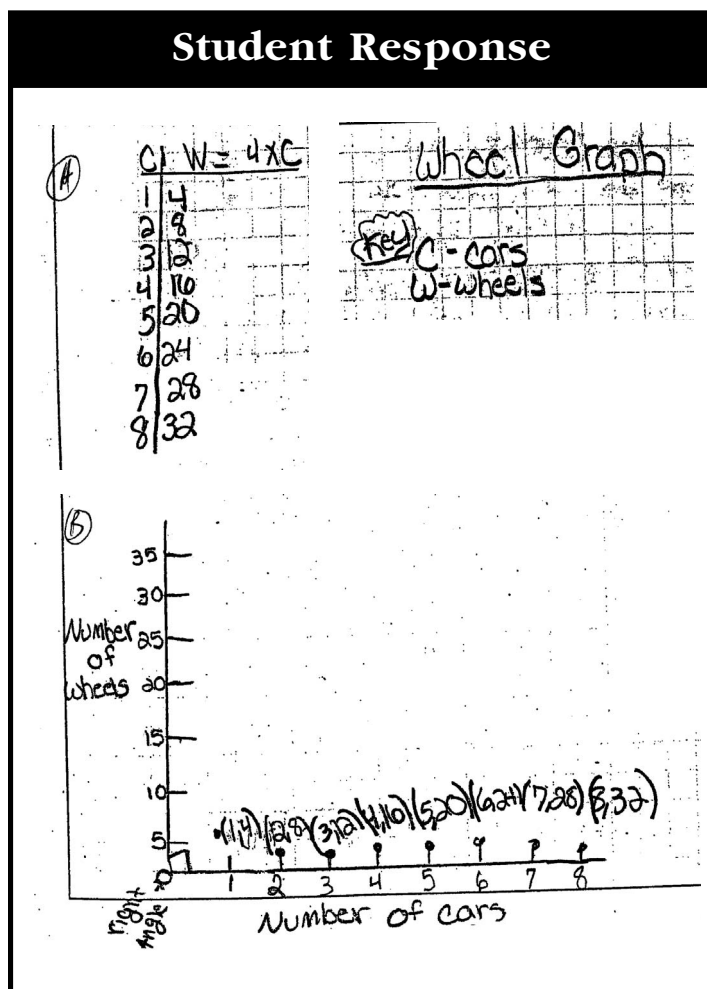 Student Response
A
C W = 4xC
1 4
2 8
3 12
4 16
5 20
6 24
7 28
8 32
Wheel Graph
Key
C - cars
W - wheels
B
35
30
Number
of
wheels
25
20
15
10
5
0
(1,4) (2,8) (3,12) (4,16) (5,20) (6,24) (7,28) (8,32)
1 2 3 4 5 6 7 8
right
Angle
Number of cars